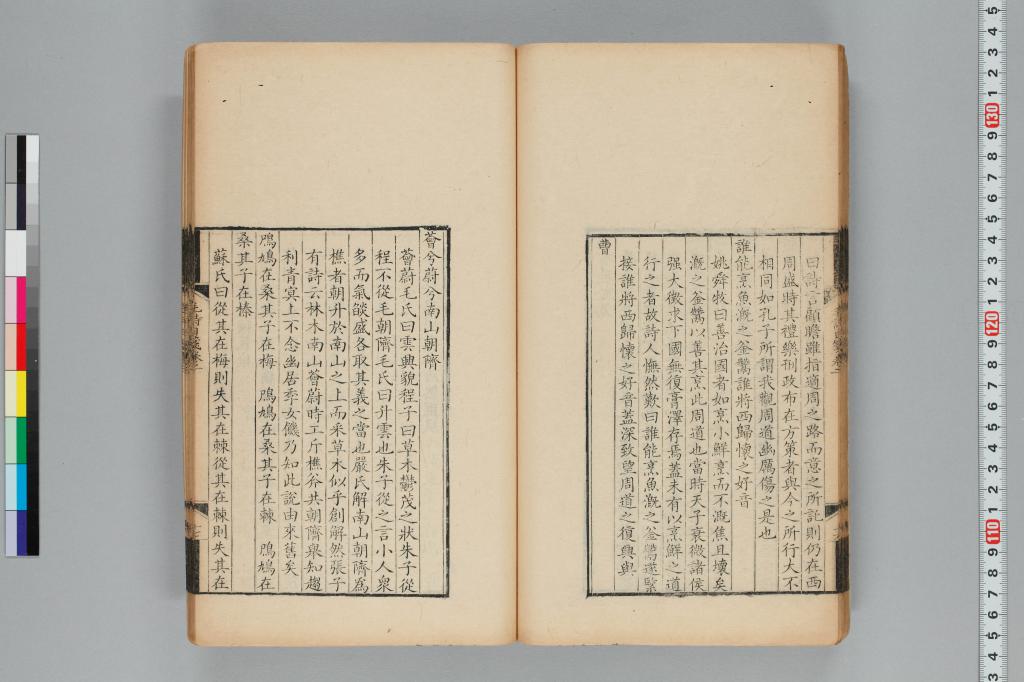 曰詩言顧瞻雖指適周之路而意之所託則仍在西
周盛時其禮樂刑政布在方策者與今之所行大不
相同如孔子所謂我觀周道幽厲傷之是也
誰能烹魚溉之釜鬵誰將西歸懷之好音
姚舜牧曰善治國者如烹小鮮烹而不溉焦且壞矣
溉之釜鬵以善其烹此周道也當時天子衰微諸侯
强大徵求下國無復膏澤存焉蓋未有以烹鮮之道
行之者故詩人憮然歎曰誰能烹魚溉之釜鬵遂緊
接誰將西歸懷之好音蓋深致望周道之復興與
曹
薈兮蔚兮南山朝隮
薈蔚毛氏曰雲興貌程子曰草木鬱茂之狀朱子從
程不從毛朝隮毛氏曰升雲也朱子從之言小人衆
多而氣燄盛各取其義之當也嚴氏解南山朝隮爲
樵者朝升於南山之上而采草木似乎創解然張子
有詩云林木南山薈蔚時工斤樵斧共朝隮舉知趨
利青冥上不念幽居季女饑乃知此說由來舊矣
鳲鳩在桑其子在梅 鳲鳩在桑其子在棘 鳲鳩在
桑其子在榛
蘇氏曰從其在梅則失其在棘從其在棘則失其在